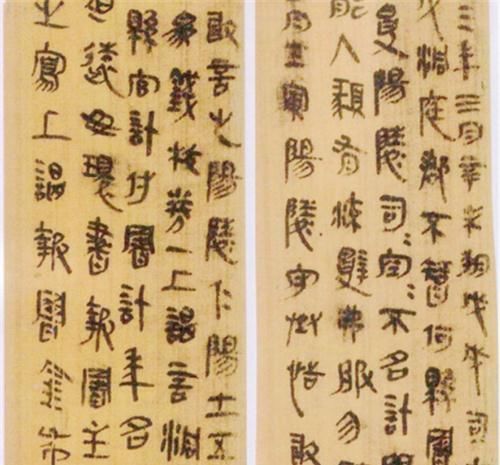 三年三月辛未朔戊戌司
戍洞庭郡不智何縣署
受陽陵司=空=不名計問
能入頪有流辭弗服勿
月壬寅陽陵守丞恬敢
敢言之陽陵仁陽士五
為錢校券一上謁言洞
縣官計付署計年名
道遠毋環書報署主
之寫上謁報署金布